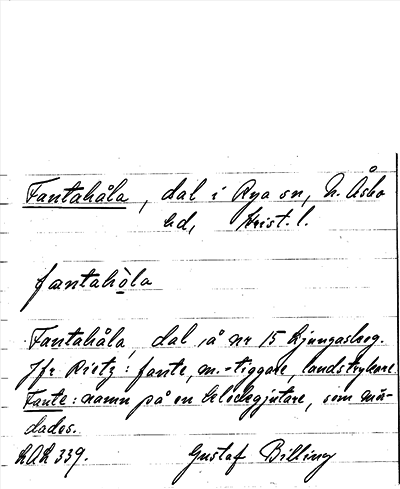 Fantahåla, dal i Rya sn, N. Åsbo
hd, Krist. l.
fantahòla
Fantahåla, dal å nr 15 Ljungaskog.
Jfr Rietz: fante, m. - tiggare, landstrykare.
Fante: namn på en klockgjutare, som mör-
dades.
LAL 339. Gustaf Billing